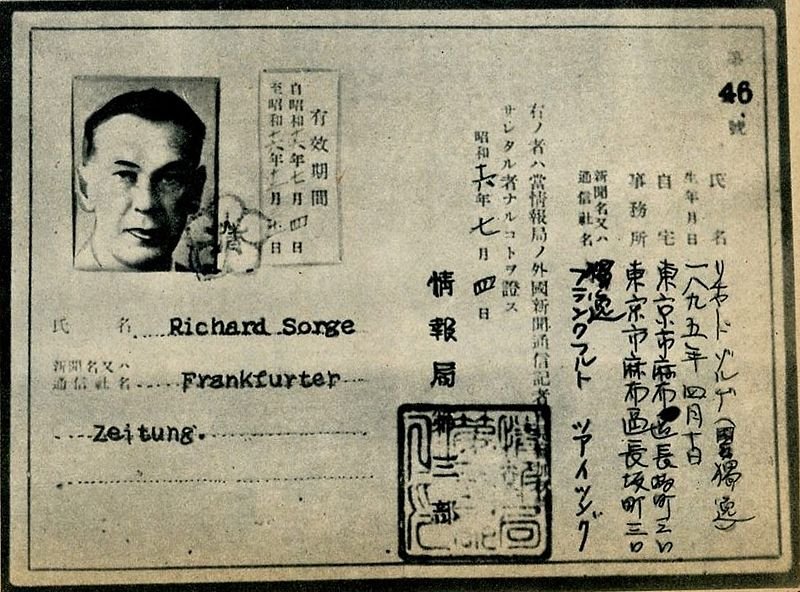 第
46
號
氏 名 リヒヤード ゾルゲ(國獨逸)
生年月日 一八九五年 四月十日
自宅 東京市麻布區長坂町三〇
事務所 東京市麻布區長坂町三〇
新聞名又ハ通信社名 獨逸 フランクフルト ツアイツング
右ノ者ハ當情報局ノ外國新聞通信記者
サレタル者ナルコトヲ證ス
昭和十六年七月四日
情報局第三部
有效期間
自昭和十六年七月四日
至昭和十六年十二月 日
氏 名 Richard Sorge
新聞名又ハ
通信社名 Frankfurter
Zeitung.